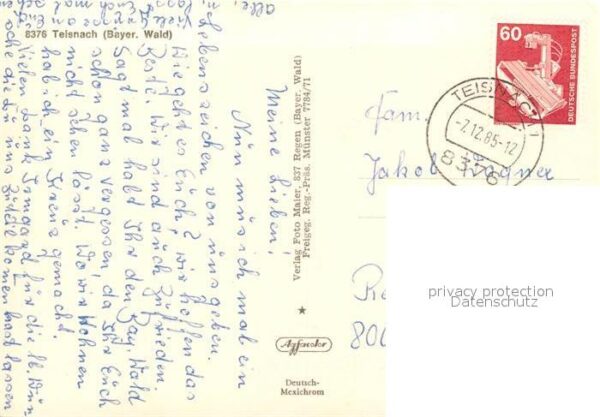 8376 Teisnach (Bayer. Wald)
Meine Lieben!
Nun muss ich mal ein
Lebenszeichen von uns geben.
Wie geht es Euch? wir hoffen das
Beste. Wir sind auch zufrieden.
Sagt mal habt Ihr den Bay. Wald
schon ganz vergessen da Ihr Euch
nicht sehen lässt. Wo wir wohnen
hab ich ein Kreuz gemacht.
Vielen Dank Irmgard für die lb. Wün-
sche die Du uns zukommen hast lassen
alle,
Verlag Foto Maier, 837 Regen (Bayer. Wald)
Freigeg. Reg.-Präs. Münster 7784/71
Agfacolor
Deutsch-
Mexichrom
60
DEUTSCHE BUNDESPOST
TEISNACH 1
-7.12.85-12
8376
Fam.
Jakob Wagner
Re
800
privacy protection
Datenschutz